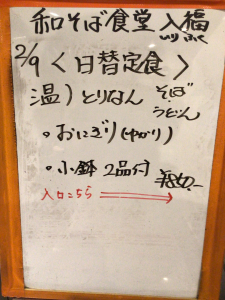 和そば食堂 入福
いり ふく
2/9 〈日替定食〉
温)とりなん そば
うどん
・おにぎり(ゆかり)
・小鉢 2品付 ¥870.-
入口こちら →